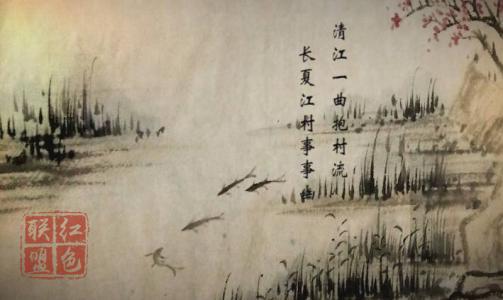 清江一曲抱村流
长夏江村事事幽
红色
联盟